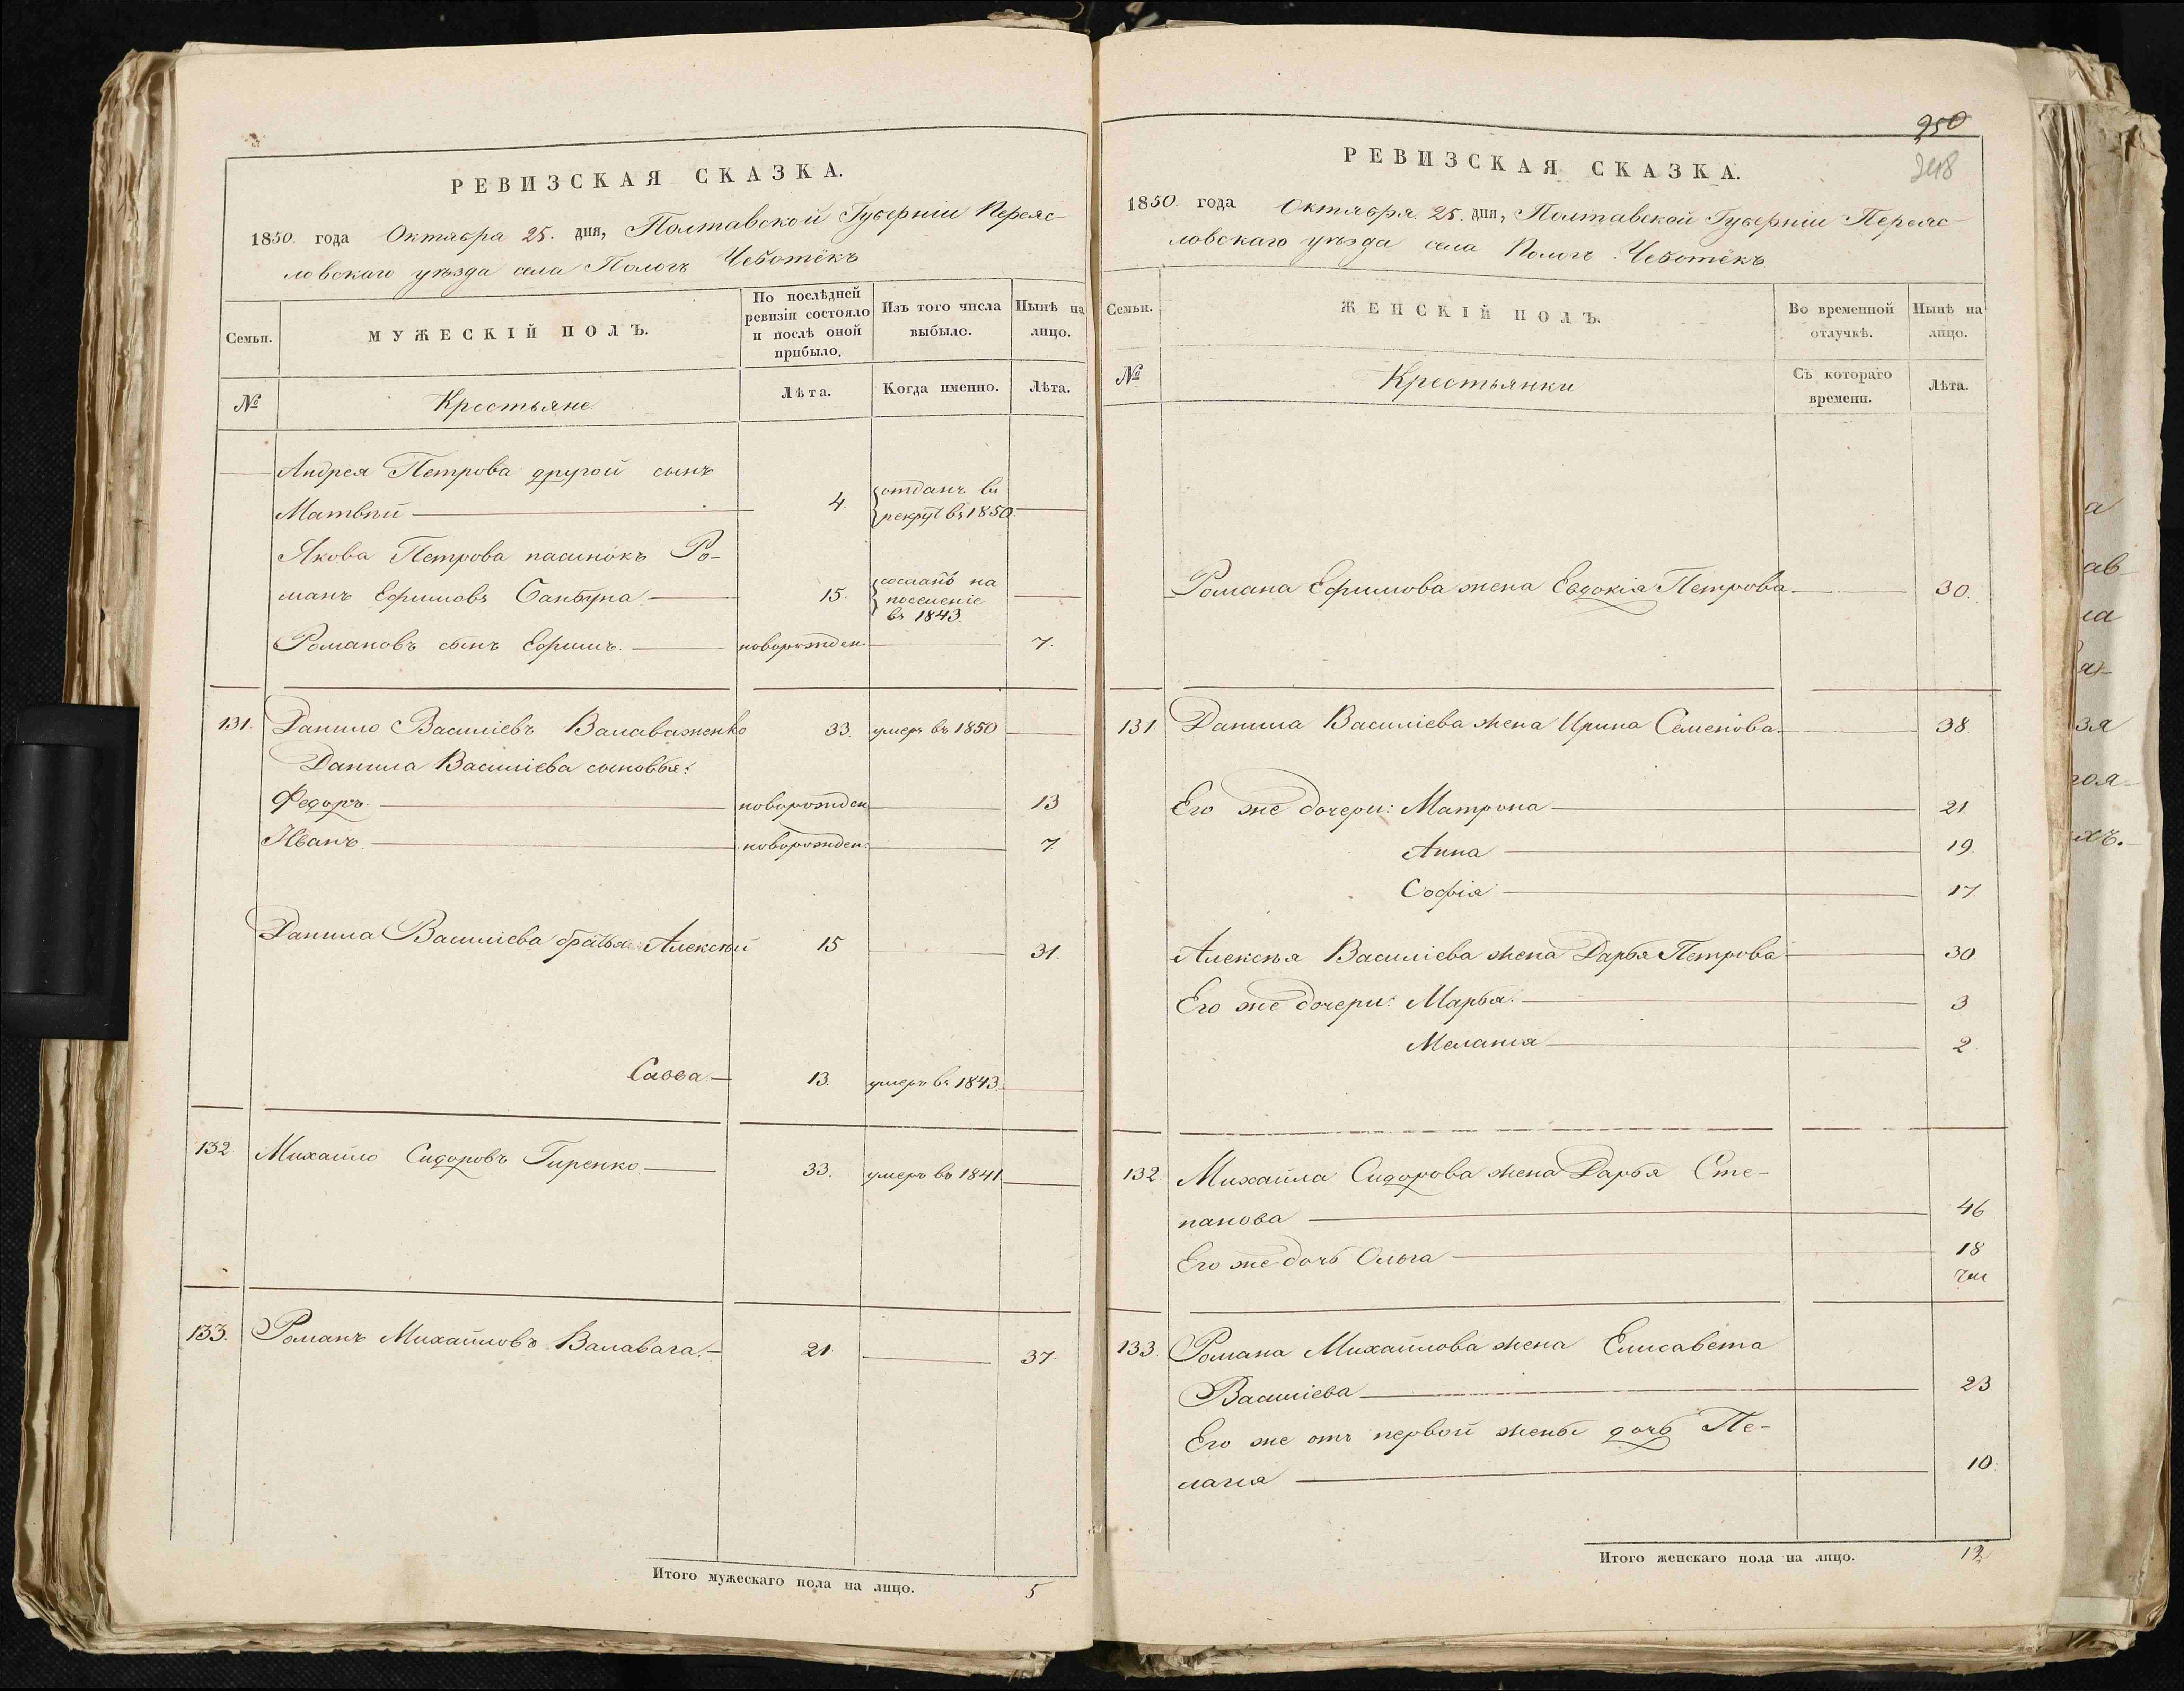 РЕВИЗСКАЯ СКАЗКА.
1850. года Октября 25. дня, Полтавской Губерніи Переяс-
ловскаго уѣзда села Пологъ Чеботёкъ
Семьи.
МУЖЕСКІЙ ПОЛЪ.
По послѣдней
ревизіи состояло
и послѣ оной
прибыло.
Изъ того числа
выбыло.
Нынѣ на
лицо.
№
Крестьяне
Лѣта.
Когда именно.
Лѣта.
Андрея Петрова другой сынъ
Матвѣй 4. отданъ въ
рекрут въ 1850.
Якова Петрова пасинокъ Ро-
манъ Ефимовъ 15. сосланъ на
поселеніе
въ 1843.
Романовъ сынъ Ефимъ. новорожден. 7.
131. Данило Василіевъ Валаваженко 33. умеръ въ 1850
Данила Василіева сыновья:
Федоръ. новорожден. 13
Иванъ. новорожден. 7.
Данила Василіева братья Алексѣй 15 31.
Савва 13. умеръ въ 1843.
132. Михайло Сидоровъ Гиренко 33. умеръ въ 1841.
133. Романъ Михайловъ Валавага. 21. 37.
Итого мужескаго пола на лицо. 5
950
248
РЕВИЗСКАЯ СКАЗКА.
1850. года Октября. 25. дня, Полтавской Губерніи Переяс-
ловскаго уѣзда села Пологъ Чеботёкъ
Семьи.
ЖЕНСКІЙ ПОЛЪ.
Во временной
отлучкѣ.
Нынѣ на
лицо.
№
Крестьянки
Съ котораго
времени.
Лѣта.
Романа Ефимова жена Евдокія Петрова 30.
131 Данила Василіева жена Ирина Семенова. 38
Его же дочери: Матрона 21
Анна 19.
Софія 17
Алексѣя Василіева жена Дарья Петрова 30
Его же дочери: Марья. 3
Меланія 2.
132. Михайла Сидорова жена Дарья Сте-
панова 46
Его же дочь Ольга 18
133. Романа Михайлова жена Елисавета
Василіева 23
Его же отъ первой жены дочь Пе-
лагія 10.
Итого женскаго пола на лицо. 12